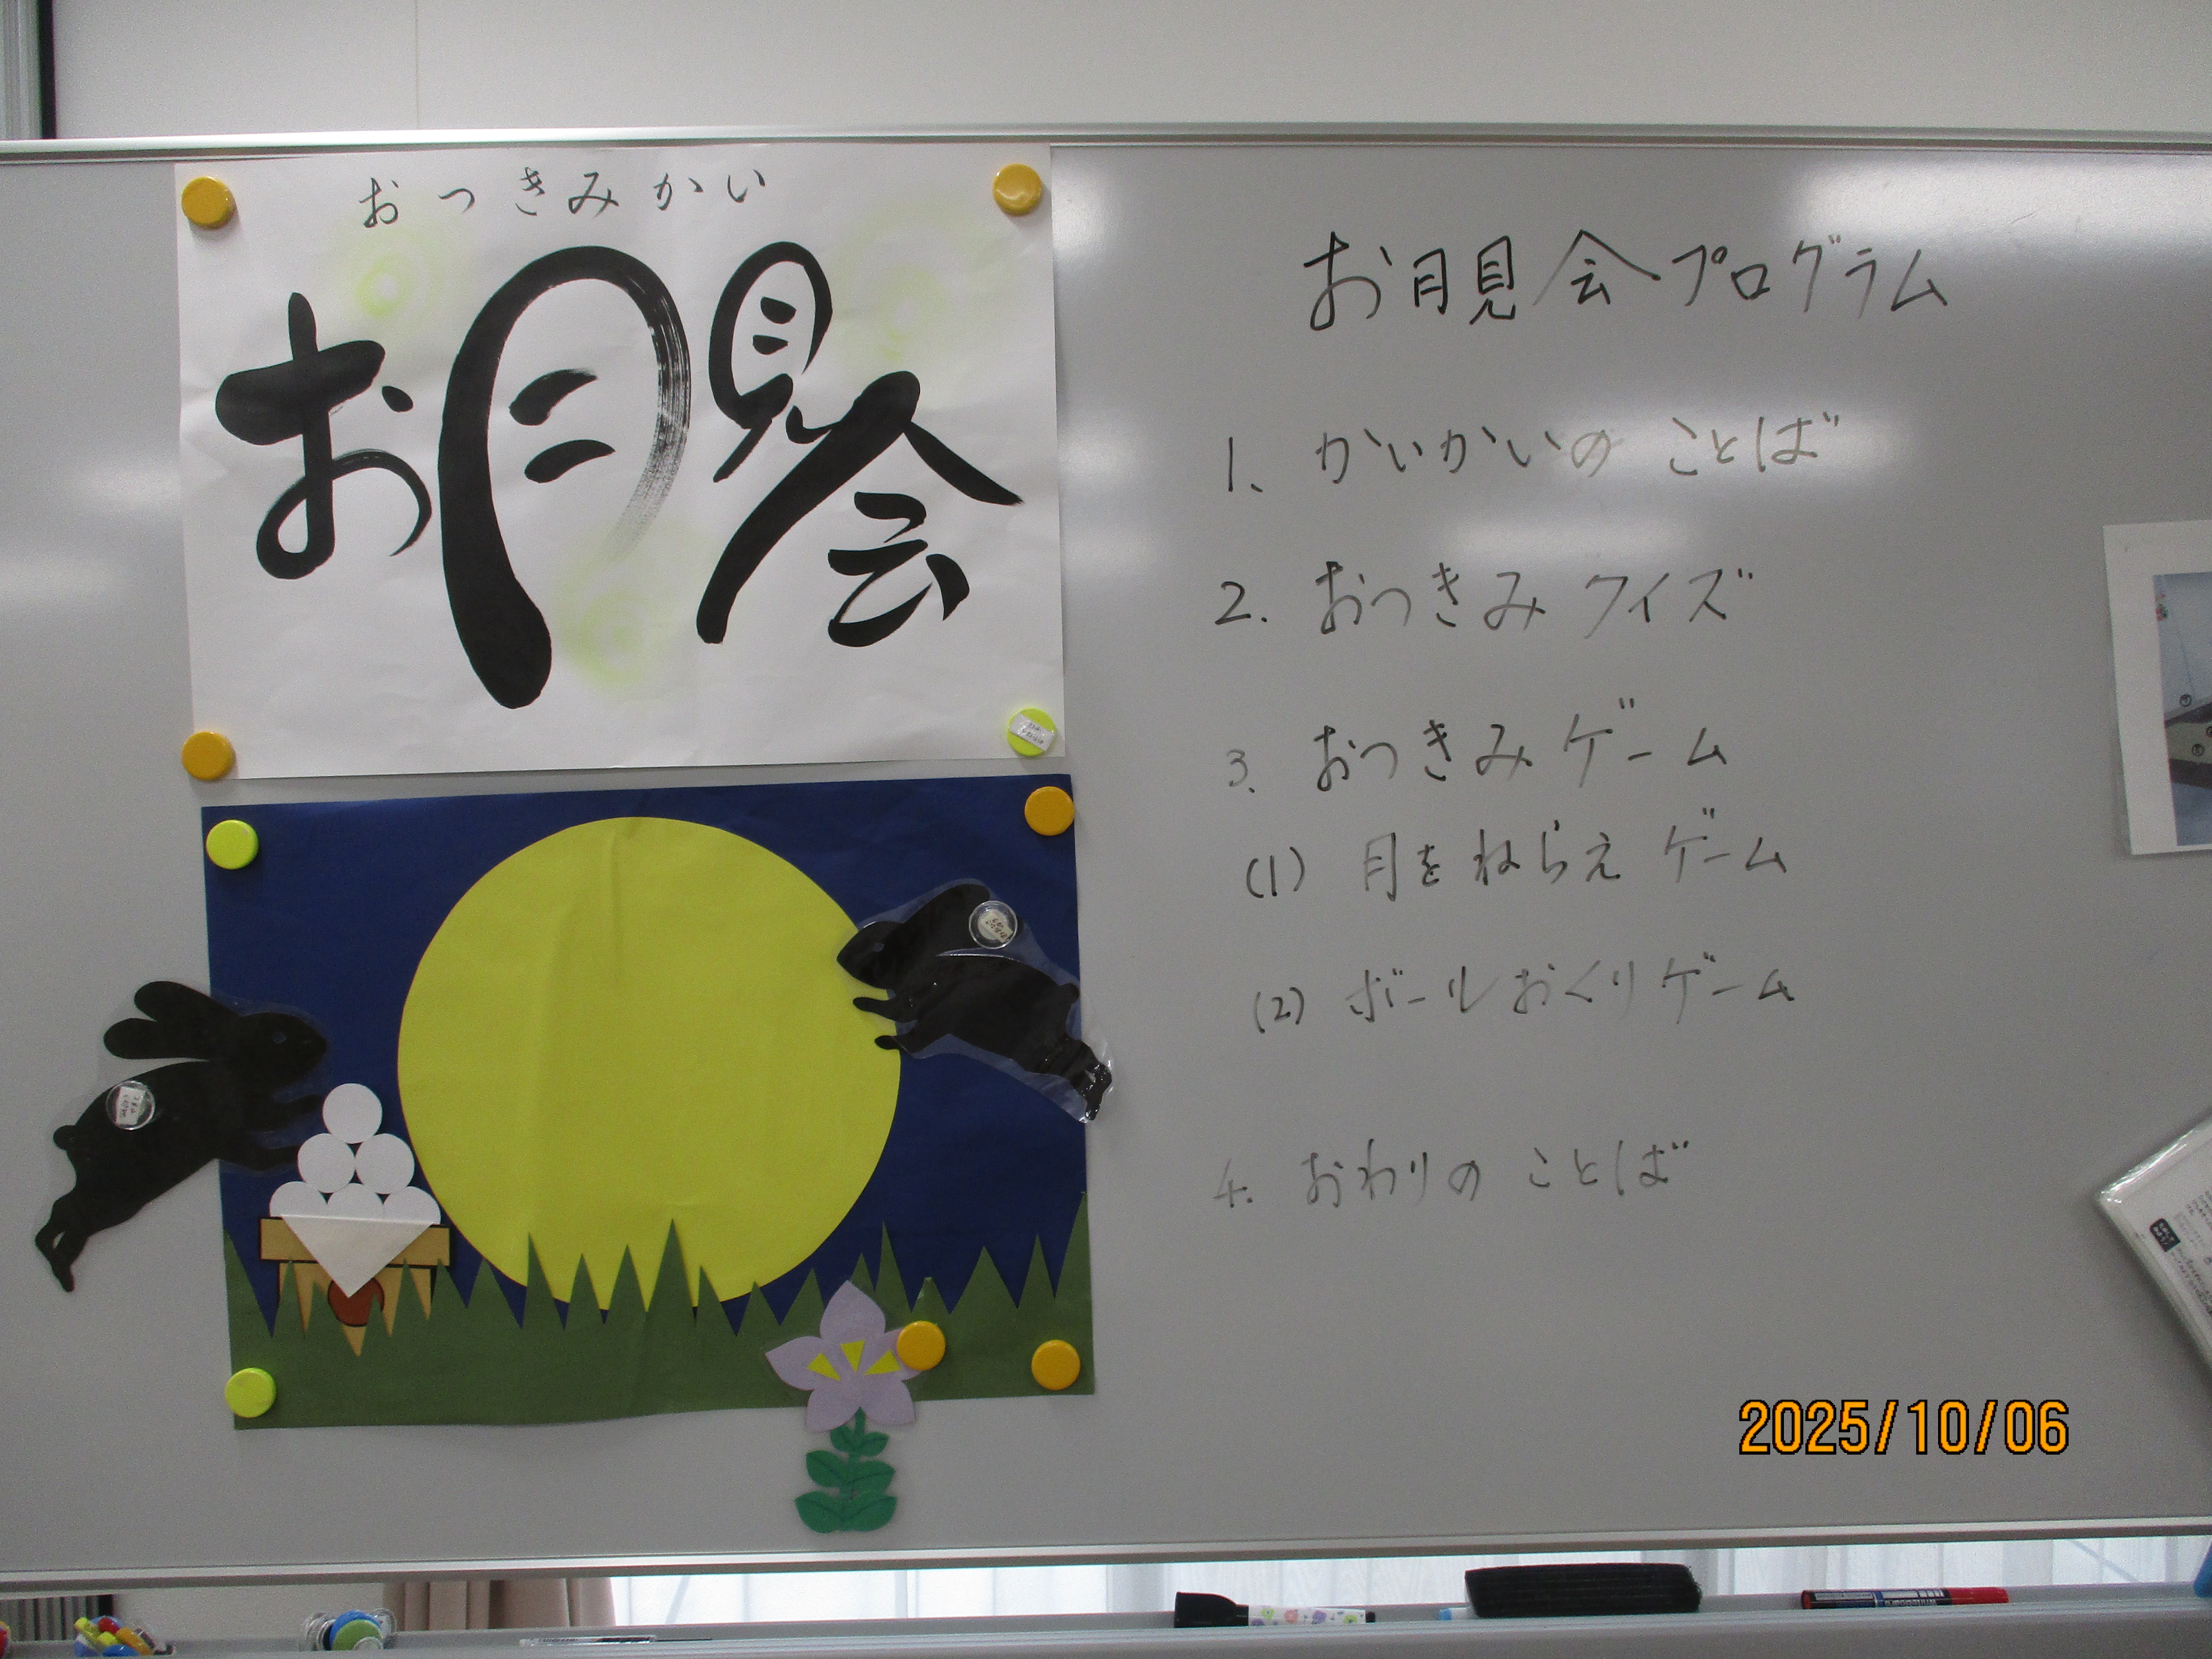 おつきみかい
お月見会
お月見会プログラム
1、かいかいの ことば
2. おつきみ クイズ
3、おつきみ ゲーム
(1) 月を ねらえ ゲーム
(2) ボールおくりゲーム
4. おわりの ことば
2025/10/06